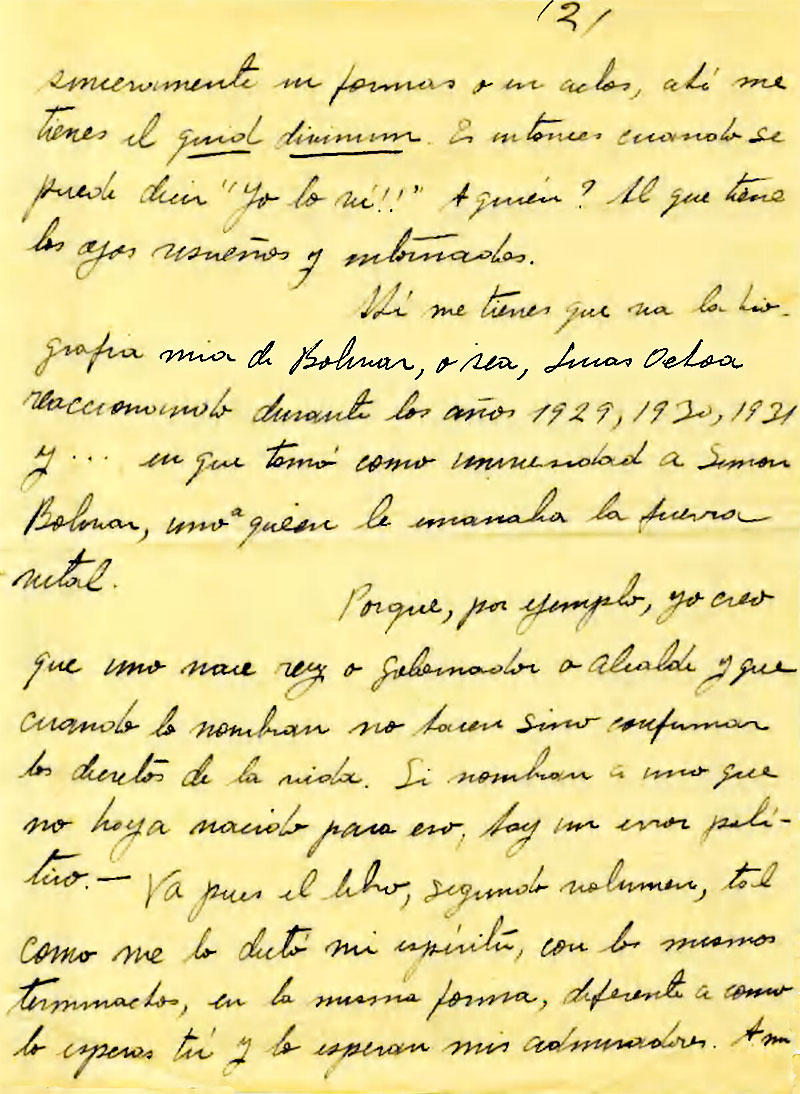 /2/
sinceramente en formas o en actos, ahí me
tienes el quid divinum. Es entonces cuando se
puede decir "Yo lo ví!!" A quién? Al que tiene
los ojos risueños y entornados.
Ahí me tienes que va la bio-
grafia mia de Bolivar, o sea, Lucas Ochoa
reaccionando durante los años 1929, 1930, 1931
y... en que tomó como universidad a Simon
Bolivar, uno a quien le emanaba la fuerza
vital.
Porque, por ejemplo, yo creo
que uno nace rey o gobernador o alcalde y que
cuando lo nombran no hacen sino confirmar
los decretos de la vida. Si nombran a uno que
no haya nacido para eso, hay un error polí-
tico.— Va pues el libro, segundo volumen, tal
como me lo dictó mi espíritu, con los mismos
terminachos, en la misma forma, diferente a como
lo esperas tú y lo esperan mis admiradores. A mi